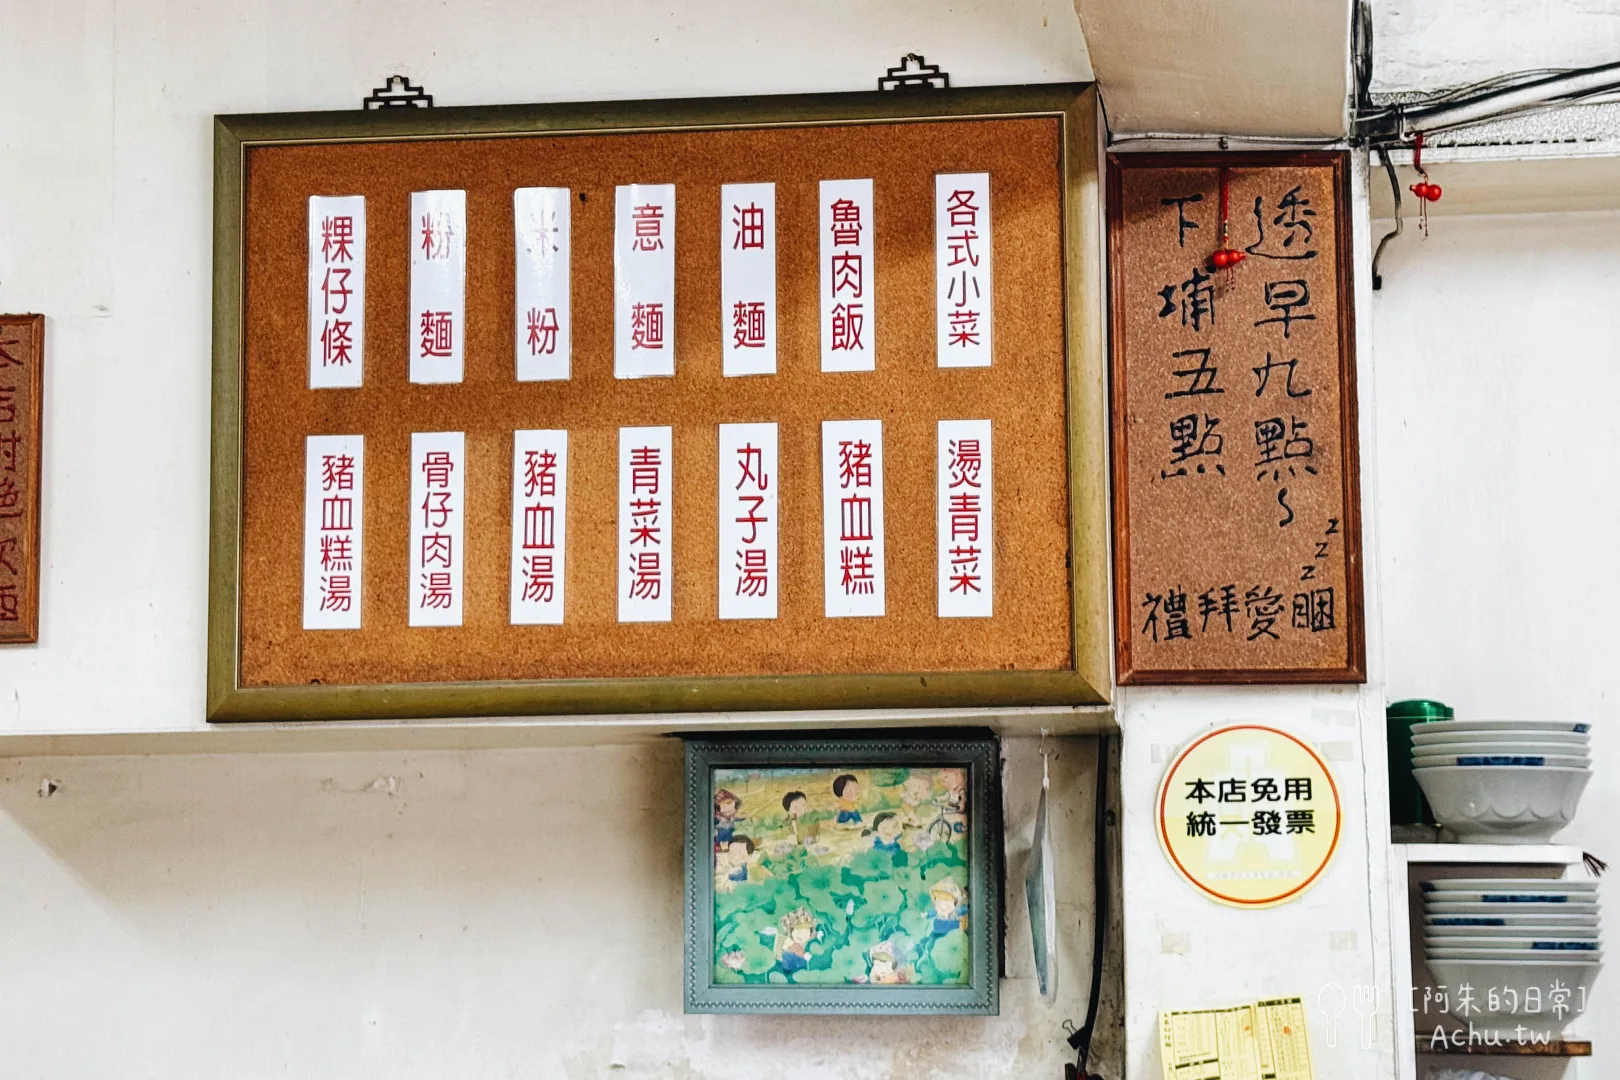 各式小菜
魯肉飯
油麵
意麵
米粉
粉麵
粿仔條
燙青菜
豬血糕
丸子湯
青菜湯
豬血湯
骨仔肉湯
豬血糕湯
透早九點~
下埔五點
zzz
禮拜愛睏
本店免用
統一發票
[阿朱的日常]
Achu.tw